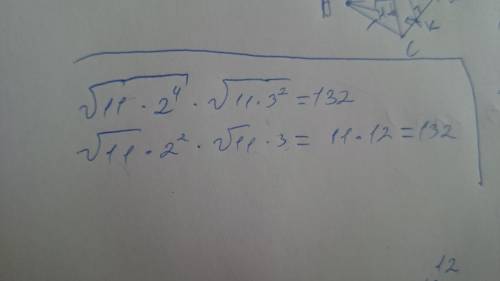 C
K
√11 · 2⁴ · √11 · 3² = 132
√11 · 2² · √11 · 3 = 11 · 12 = 132
12